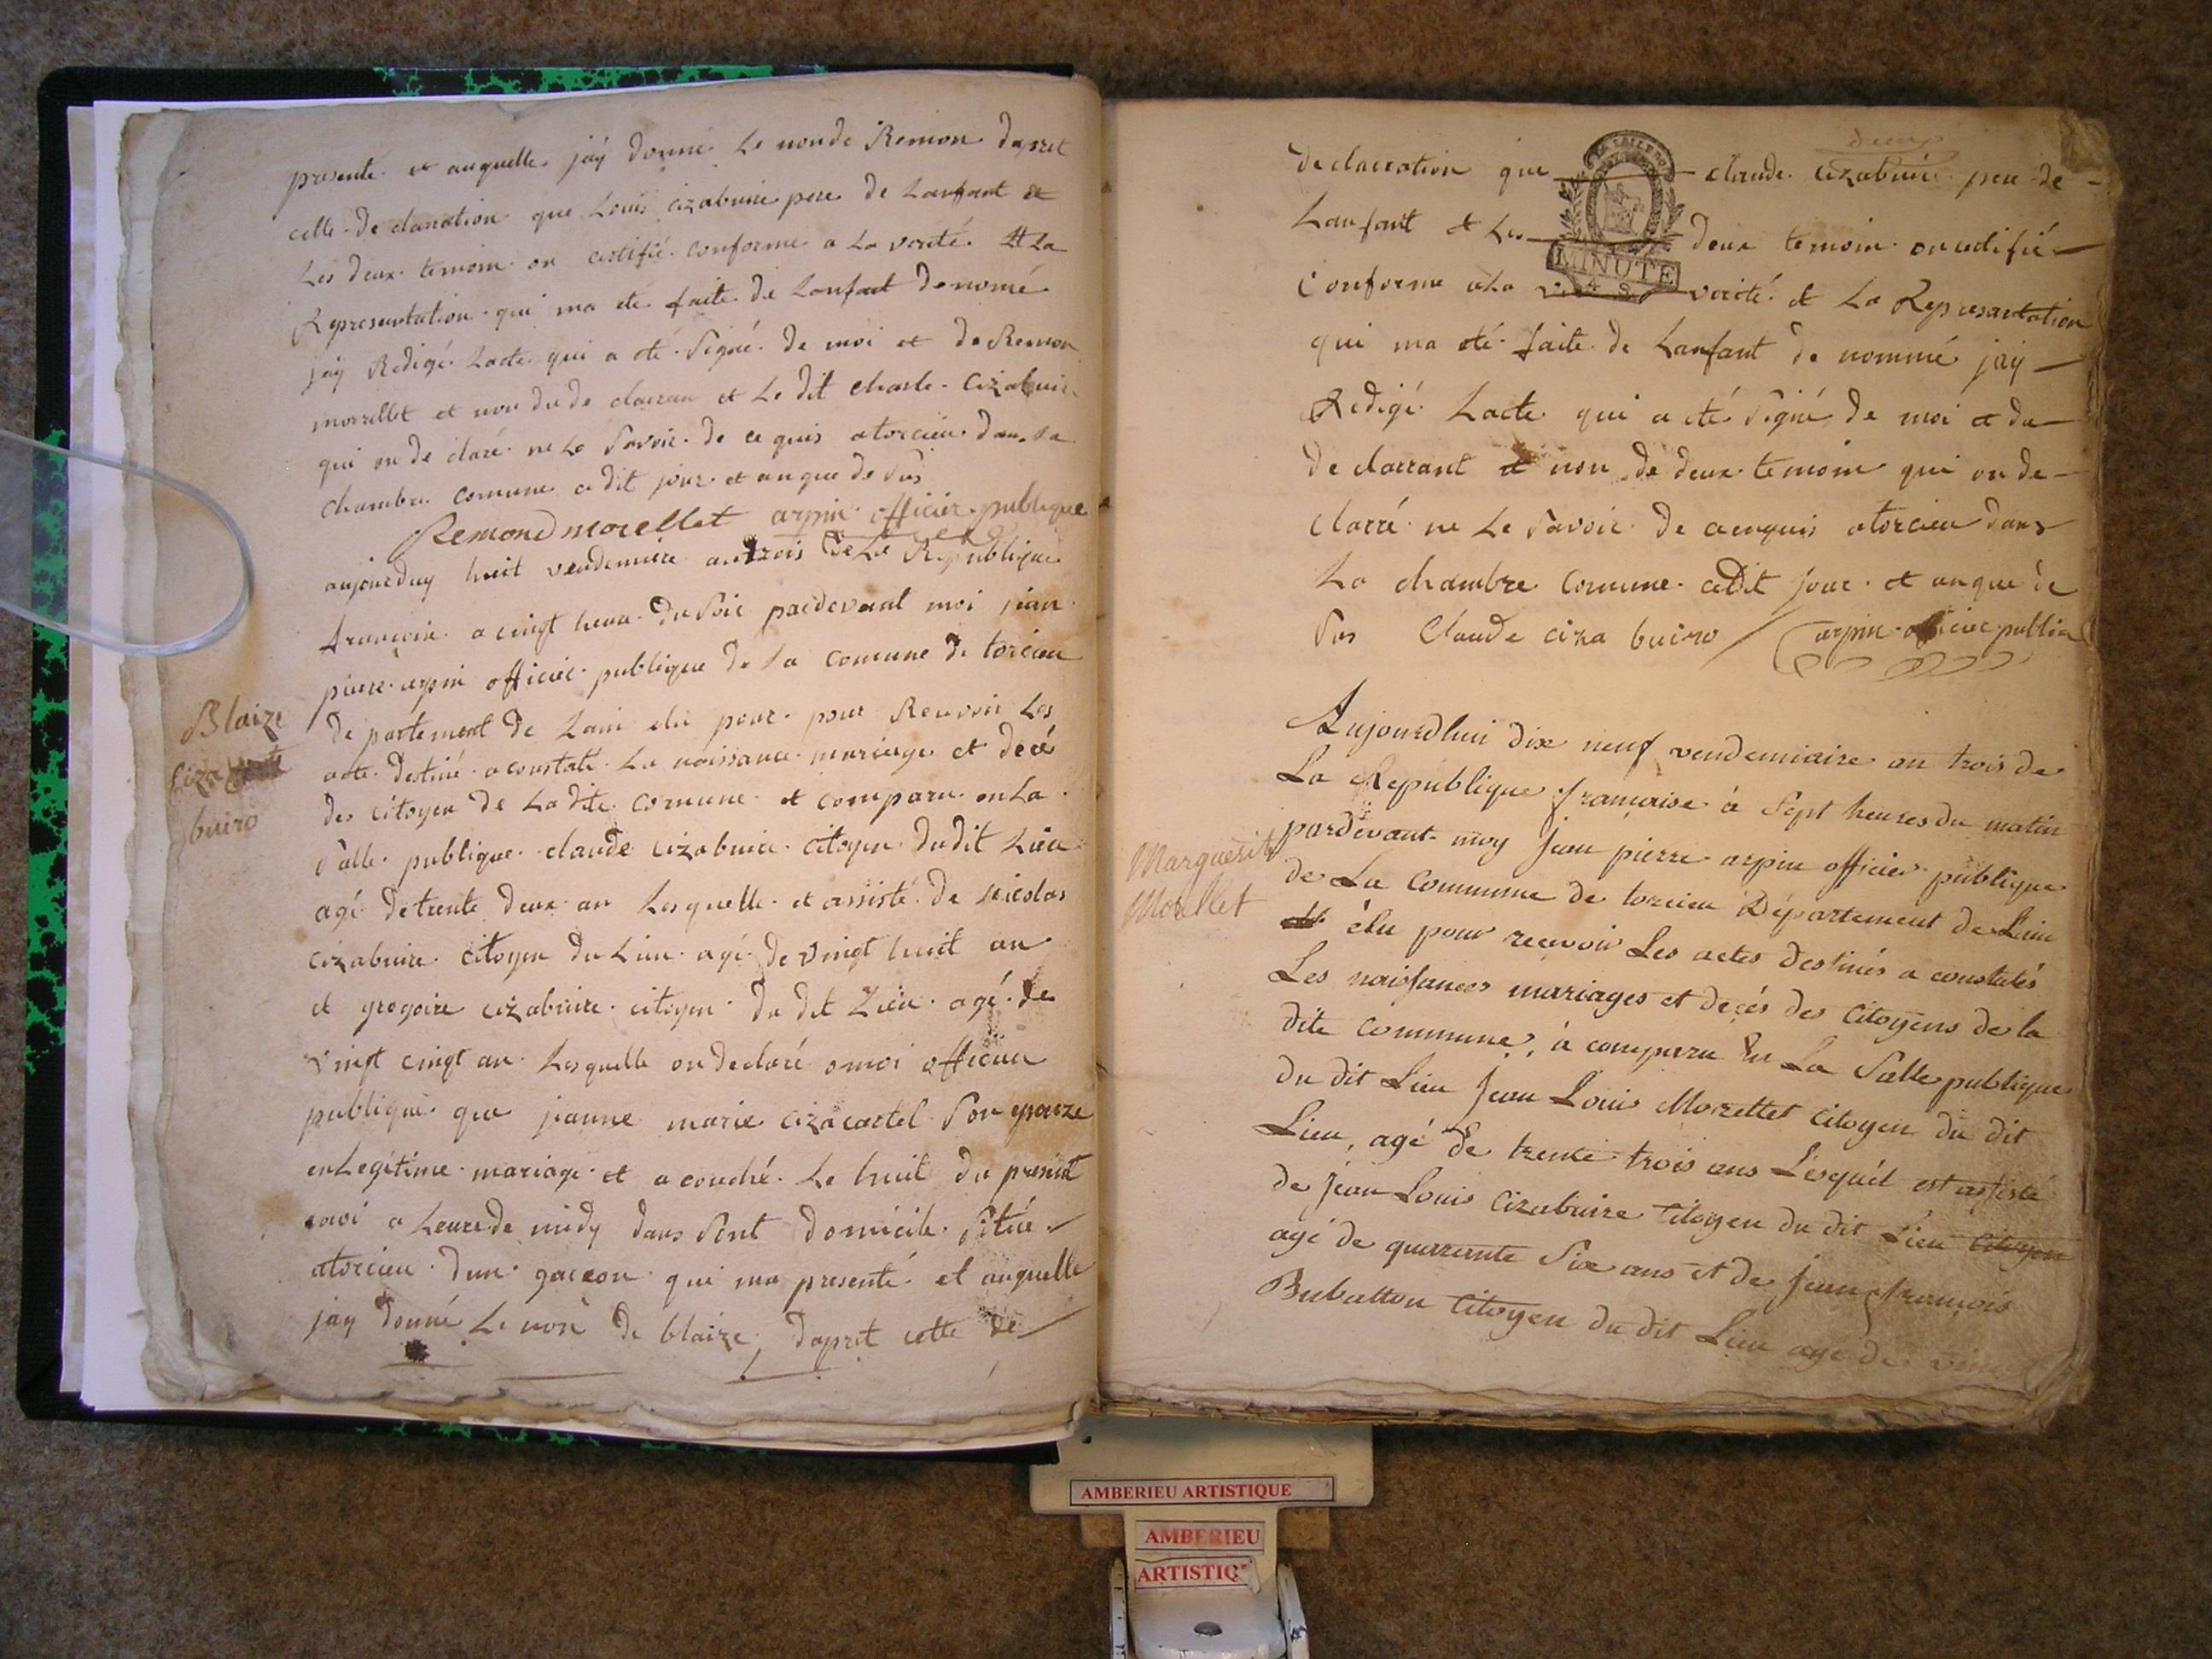 presente et auquelle jay donné Le nonde Remon dapret
celle de claration que Louis cizabuire pere de Lanfant et
Les deux temoin on certifié conforme a La verité et La
Representation qui ma eté faite de Lanfant denomé
jay Redigé Lacte qui a eté Signé de moi et de Remon
morellet et non du de claran et Le dit charle cizabuire
qui on de claré ne Le Savoir de ce quis atorcieu dans La
chambre comune cedit jour et anque de Sus
Remond morellet arpin officier publique
aujourduy huit vendemiere an trois de La Republique
francoise a cinqt heure du Soir pardevant moi jean
pierre arpin officier publique de La comune de torcieu
De partement de Lain elu pour pour Recevoir Les
acte destiné a constaté La naissance mariage et decé
des citoyen de La dite comune et comparu en La
Salle publique claude cizabuire citoyen dudit Lieu
agé de trente deux an Lesquelle et assisté de nicolas
cizabuire citoyen du Lieu agé de vingt huit an
et gregoire cizabuire citoyen du dit Lieu agé de
vingt cinqt an Lesquelle on declaré a moi officier
publique que jeanne marie cizacartel Son epouze
en Legitime mariage et a couché Le huit du present
moi a Leure de midy dans Sont domicile Situé
atorcieu dun garcon qui ma presenté et auquelle
jay donné Le non de blaize, dapret cette de
Blaize
Ciza
buiro
deux
declaration que claude cizabuire pere de
Lanfant et Les deux temoin on certifié
Conforme a La verité et La Representation
qui ma eté faite de Lanfant de nommé jay
Redigé Lacte qui a eté Signé de moi et du
declarrant et non de deux temoin qui on de
clarré ne Le Savoir de cenquis atorcieu dans
La chambre comune cedit jour et anque de
Sus Claude ciza buiro arpin officier public
Aujourdhui dix neuf vendemiaire an trois de
La Republique française à Sept heures du matin
pardevant moy Jean pierre arpin officier publique
de La Commune de torcieu Département de Lain
élu pour recevoir Les actes destinés a constatés
Les naissances mariages et decés des Citoyens de la
dite commune, à comparu En La Salle publique
du dit Lieu Jean Louis Morellet Citoyen du dit
Lieu, agé de trente trois ans Lesquel est assisté
de Jean Louis Cizabuire Citoyen du dit Lieu Citoyen
agé de quarante Six ans et de Jean françois
Bubatton Citoyen du dit Lieu agé de
Marguerit
Morellet
MINUTE
AMBERIEU ARTISTIQUE
AMBERIEU
ARTISTIQ